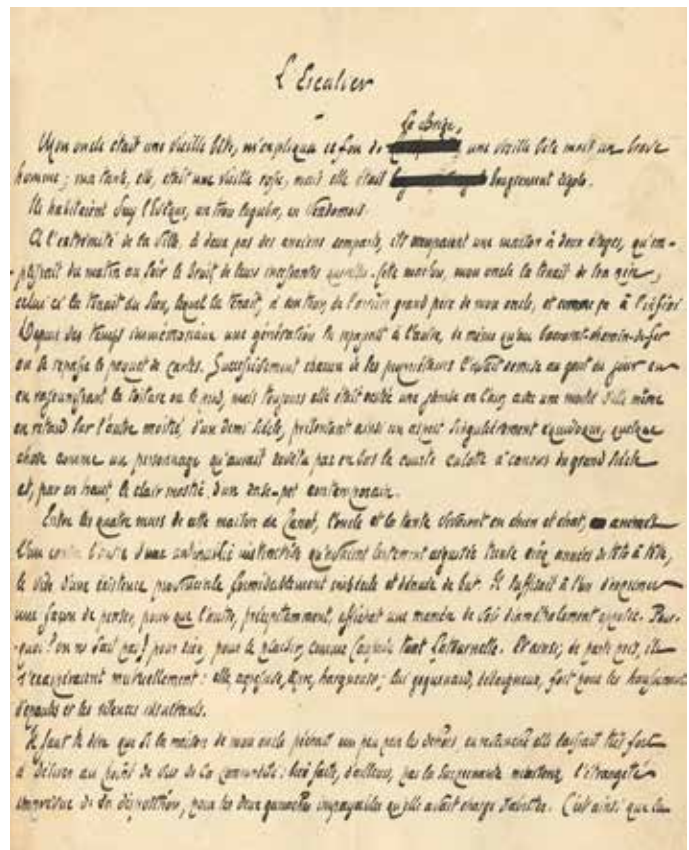 L'Escalier
La Brige,
Mon oncle était une vieille bête, m'expliqua ce fou de une vieille bête mais un brave
homme ; ma tante, elle, était une vieille rosse, mais elle était bougrement rigolo.
Ils habitaient un trou
A l'extrémité de la ville, à deux pas des anciens remparts, ils occupaient une maison à deux étages, qu'em-
plissait du matin au soir le bruit de leurs incessantes querelles. Cette maison, mon oncle la tenait de son père ;
celui ci la tenait du sien, lequel la tenait, à son tour, de l'arrière grand père de mon oncle, et comme ça à l'infini
Depuis des temps immémoriaux une génération la repassait à l'autre, de même qu'au baccarat-chemin-de-fer
on se repasse le paquet de cartes. Successivement chacun de ses propriétaires l'avait remise au goût du jour en
en rajeunissant la toiture ou le pied, mais toujours elle était restée une phrase en l'air, avec une moitié d'elle même
en retard sur l'autre moitié, d'un demi siècle, présentant ainsi un aspect singulièrement équivoque, quelque
chose comme un personnage qu'aurait dévêtu par en bas la courte culotte d'un du grand siècle
et, par en haut, le d'un contemporain.
Entre les quatre murs de cette maison de l'oncle et la tante vivaient en chien et chat,
l'un contre l'autre d'une animosité instinctive qu'avaient lentement aiguisée trente cinq années de tête à tête,
le vide d'une existence provinciale formidablement imbécile et dénuée de but. Il suffisait à l'un d'exprimer
une façon de penser, pour que l'autre, précipitamment, affichât une manière de voir diamétralement opposée. Pour-
quoi ? on ne sait pas ! pour rien, pour le plaisir, comme tant Et ainsi, de part et d'autre, ils
s'exaspéraient mutuellement : elle, agressive, hargneuse ; lui goguenard, dédaigneux, fort pour les haussements
d'épaules et les silences insultants.
Il faut le dire que si la maison de mon oncle péchait un peu par les dehors en revanche elle laissait très fort
à désirer au point de vue de la commodité ; bien faite, d'ailleurs, par la surprenante l'étrangeté
imprévue de sa disposition, pour les deux ganaches impayables qu'elle avait charge d'abriter. C'est ainsi que